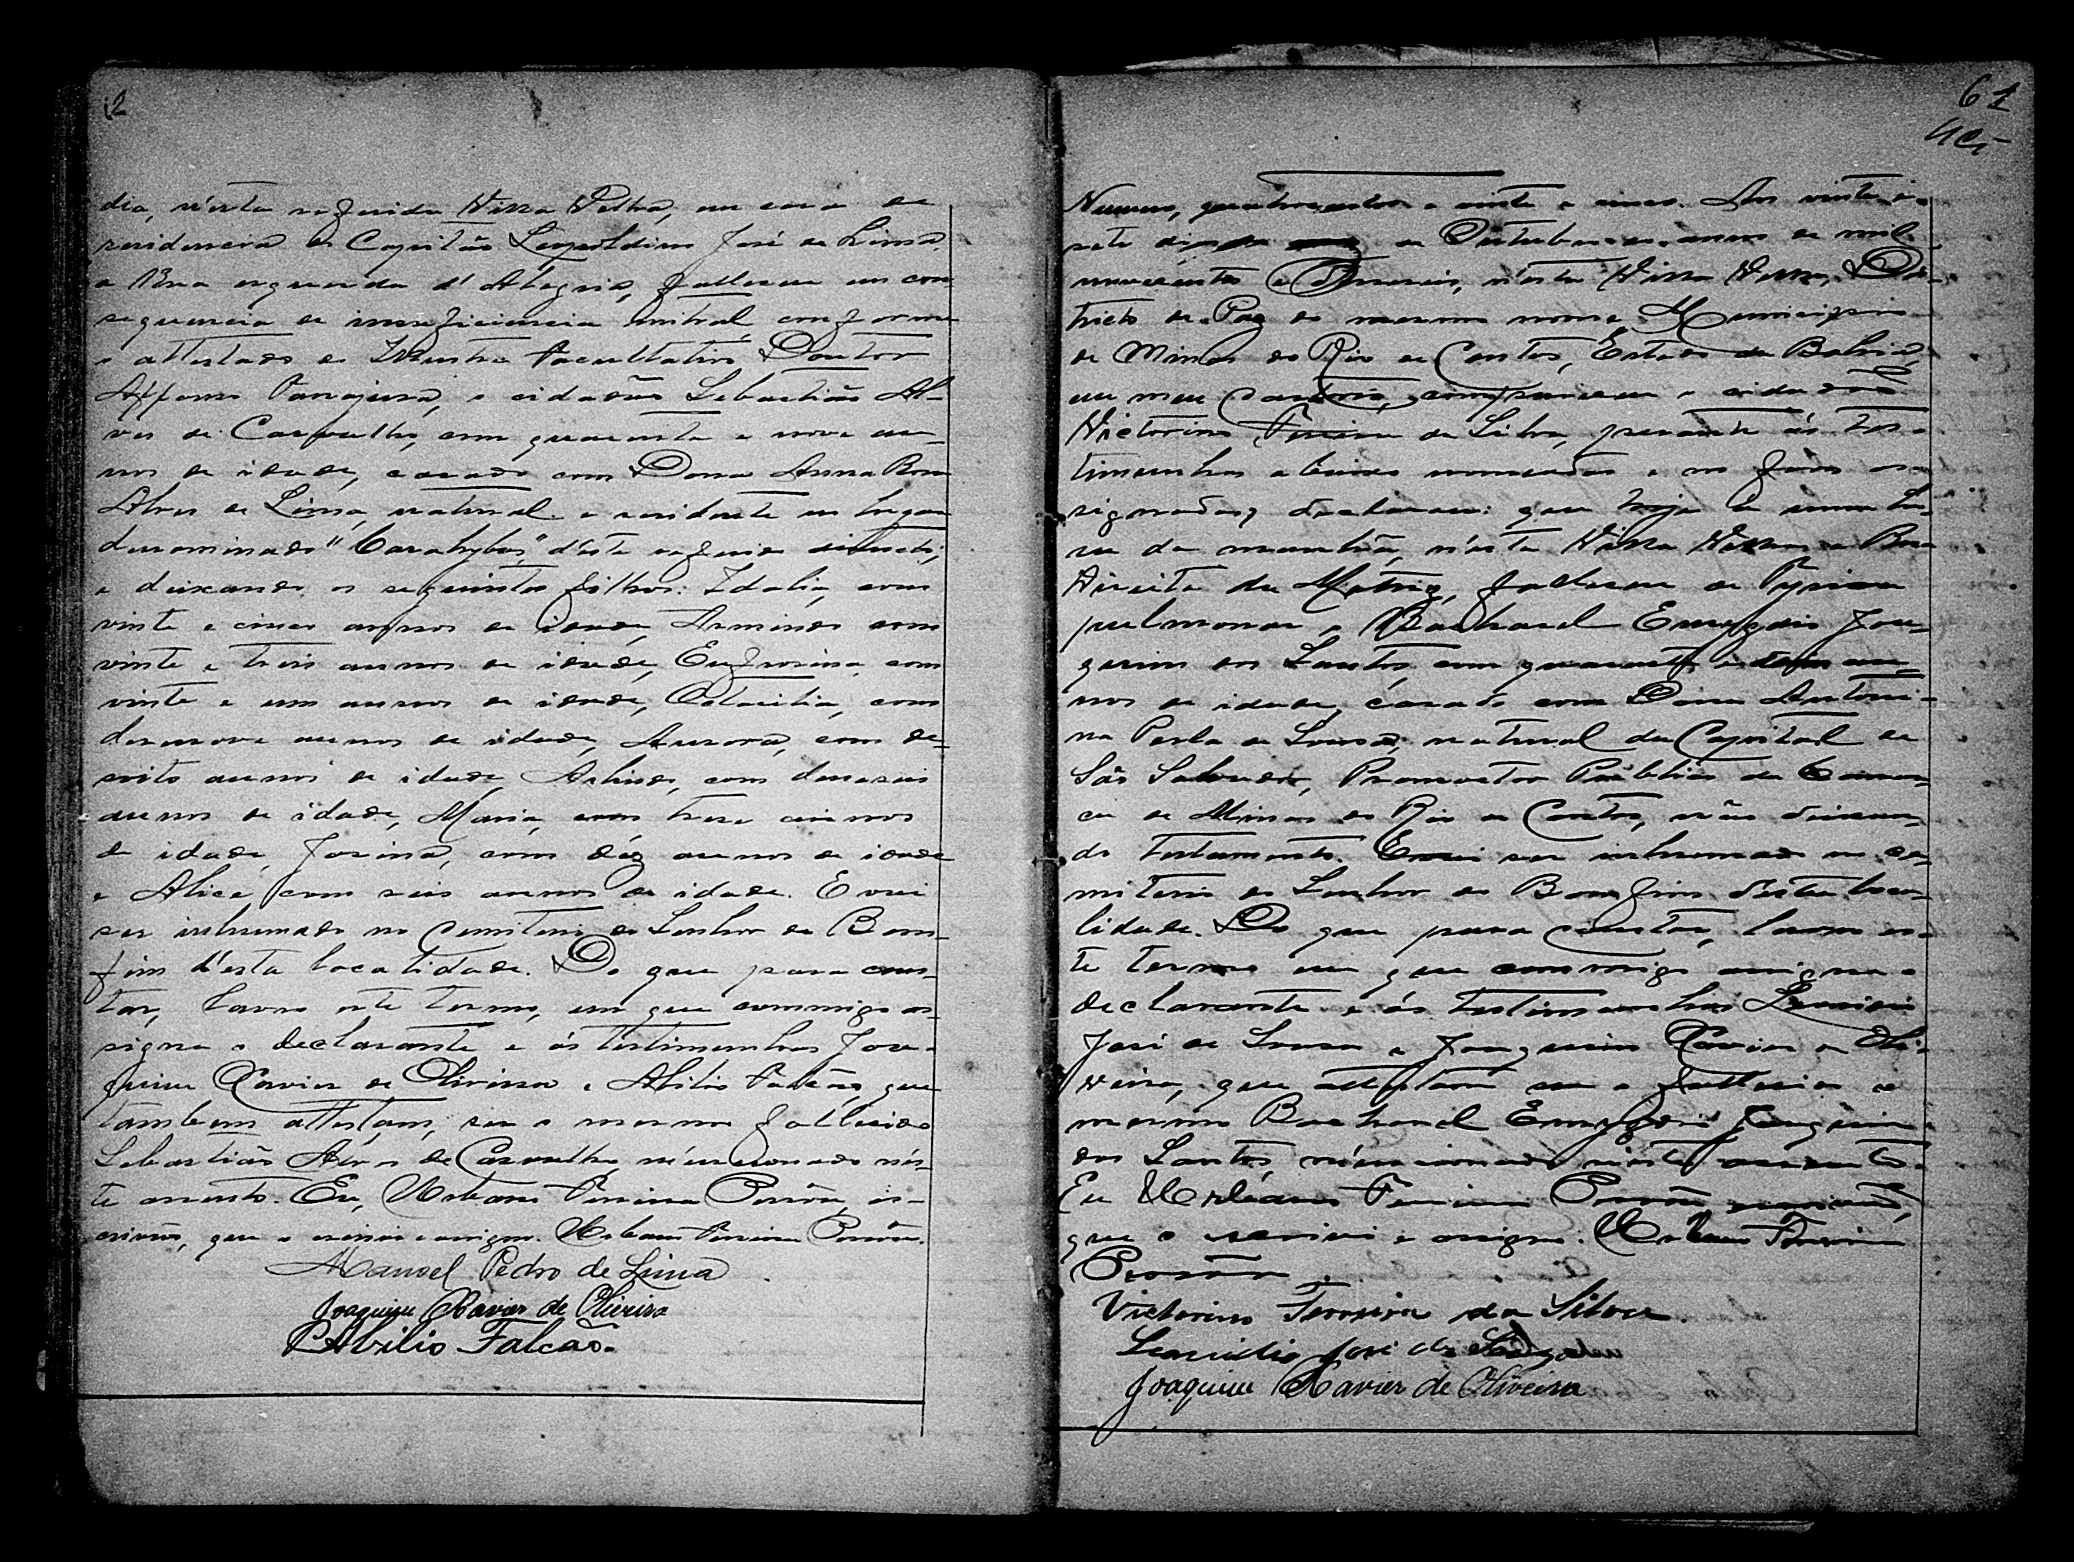 2
dia, n'esta referida Villa Velha, em casa de
residencia do Capitão Leopoldino José de Lima,
a Rua esquerda d'Alegria, falleceu em con
sequencia de insuficiencia mitral, conforme
o attestado do Illustre facultativo Doutor
Affonso, o cidadão Sebastião Al-
ves de Carvalho, com quarenta e nove an-
nos de idade, casado com Dona Anna Rosa
Alves de Lima, natural e residente no lugar
denominado "Carahybas," d'este referido districto;
e deixando os seguintes filhos: Idalia, com
vinte e cinco annos de idade, Armindo com
vinte e tres annos de idade, Eufrosina, com
vinte e um annos de idade, Octacilia, com
desenove annos de idade, Aurora, com de-
soito annos de idade, Arlindo, com deseseis
annos de idade, Maria, com trese annos
de idade, Josina, com déz annos de idade
e Alice, com seis annos de idade. E vai
ser inhumado no cemiterio do Senhor do Bom-
fim d'esta localidade. Do que para cons-
tar, lavro este termo, em que commigo as-
signa o declarante e ás testimunhas Joa-
quim Xavier de Oliveira e Abilio Falcão, que
tambem attestam, ser o mesmo fallecido
Sebastião Alves de Carvalho, mencionado nes-
te assento. Eu, Urbano Ferreira Passôa, es-
crivão, que o escrevi e assigno. Urbano Ferreira Passôa.
Manoel Pedro de Lima
Joaquim Xavier de Oliveira
Abilio Falcão.
61
Numero, quatrocentos e vinte e cinco. Aos vinte e
sete dias de Outubro do anno de mil
novecentos e, n'esta Villa Velha, Dis-
tricto de Paz do mesmo nome, Municipio
de Minas do Rio de Contas, Estado da Bahia,
em meu Cartorio, compareceu o cidadão
Victorino Ferreira da Silva, perante ás tes-
timunhas abaixo nomeadas e no fim as-
signadas, declarou: que hoje a uma ho-
ra da manhã, n'esta Villa Velha, a Rua
Direita da Matriz, falleceu de
pulmonar o Bacharel Emygdio Joa-
quim dos Santos, com quarenta e an-
nos de idade, casado com Dona Antoni-
na de Sousa, natural da Capital de
São Salvador, Promotor Publico da Comar-
ca de Minas do Rio de Contas, não deixan-
do testamento. E vai ser inhumado no ce-
miterio do Senhor do Bomfim d'esta loca-
lidade. Do que para constar, lavro es-
te termo em que commigo assigna o
declarante e ás testimunhas Leonidio
José de Sousa e Joaquim Xavier de Oli-
veira, que attestam ser o fallecido o
mesmo Bacharel Emygdio Joaquim
dos Santos, mencionado n'este assento.
Eu Urbano Ferreira Passôa escrivão,
que o escrevi e assigno. Urbano Ferreira
Passôa
Victorino Ferreira da Silva
Leonidio José de Souza
Joaquim Xavier de Oliveira